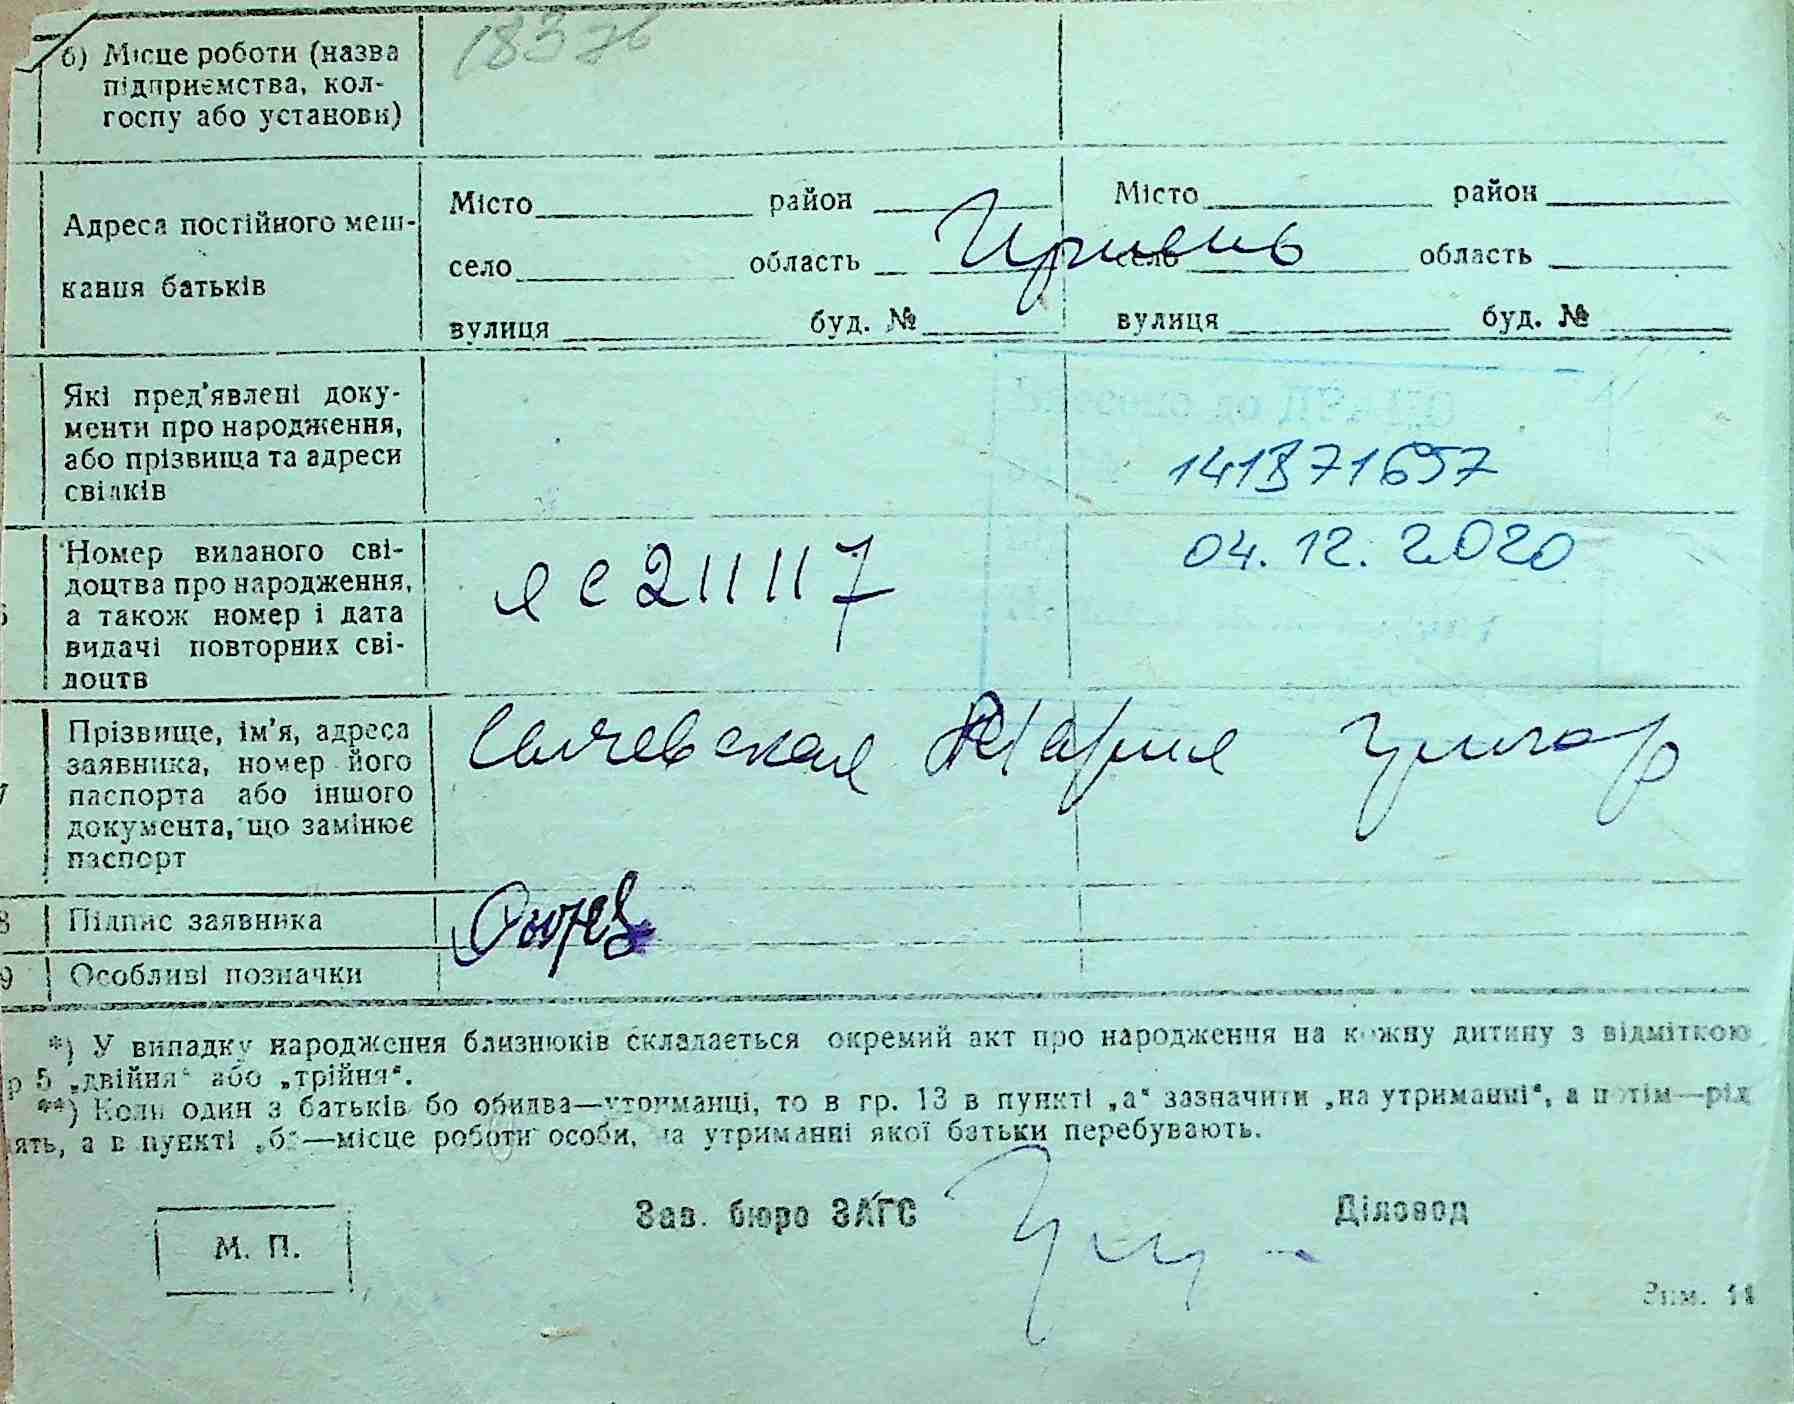 б) Місце роботи (назва
підприємства, кол-
госпу або установи)
183 зб
Адреса постійного меш-
кання батьків
Місто район Місто район
село область село область
Ирпень
вулиця буд. № вулиця буд. №
Які пред'явлені доку-
менти про народження,
або прізвища та адреси
свідків
141371657
Номер виданого сві-
доцтва про народження,
а також номер і дата
видачі повторних сві-
доцтв
яс 211117
04.12.2020
7 Прізвище, ім'я, адреса
заявника, номер його
паспорта або іншого
документа, що замінює
паспорт
Мария Григор
8 Підпис заявника
9 Особливі позначки
*) У випадку народження близнюків складається окремий акт про народження на кожну дитину з відміткою
р 5 „двійня“ або „трійня“.
**) Коли один з батьків бо обидва—утриманці, то в гр. 13 в пункті „а“ зазначити „на утриманні“, а потім—рід
ять, а в пункті „б“—місце роботи особи, на утриманні якої батьки перебувають.
Зав. бюро ЗАГС Діловод
М. П.
Зам. 14